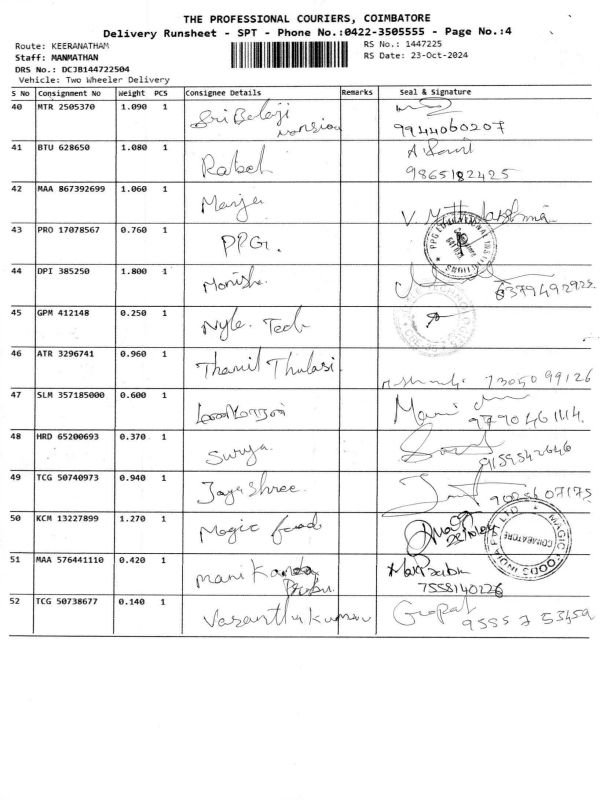 THE PROFESSIONAL COURIERS, COIMBATORE
Delivery Runsheet - SPT - Phone No.:0422-3505555 - Page No.:4
Route: KEERANATHAM
RS No.: 1447225
Staff: MANMATHAN
RS Date: 23-Oct-2024
DRS No.: DCJB144722504
Vehicle: Two Wheeler Delivery
S No Consignment No Weight PCS Consignee Details Remarks Seal & Signature
40 MTR 2505370 1.090 1 Sri Balaji mansion
9944060207
41 BTU 628650 1.080 1
9865182425
42 MAA 867392699 1.060 1
43 PRO 17078567 0.760 1 PPG.
PPG EDUCATIONAL
44 DPI 385250 1.800 1 Monisha
6379492925
45 GPM 412148 0.250 1 Nyle. Tech
46 ATR 3296741 0.960 1 Thamil Thulasi
73050 99126
47 SLM 357185000 0.600 1
Mani
9790461114.
48 HRD 65200693 0.370 1 Surya
9159542646
49 TCG 50740973 0.940 1 Jaya Shree.
50 KCM 13227899 1.270 1 Magic foods
MAGIC FOODS INDIA PVT LTD
COIMBATORE
51 MAA 576441110 0.420 1 mani Kanda Prabu.
7558140226
52 TCG 50738677 0.140 1 Vasanthakumar
Gopal
95557 53459